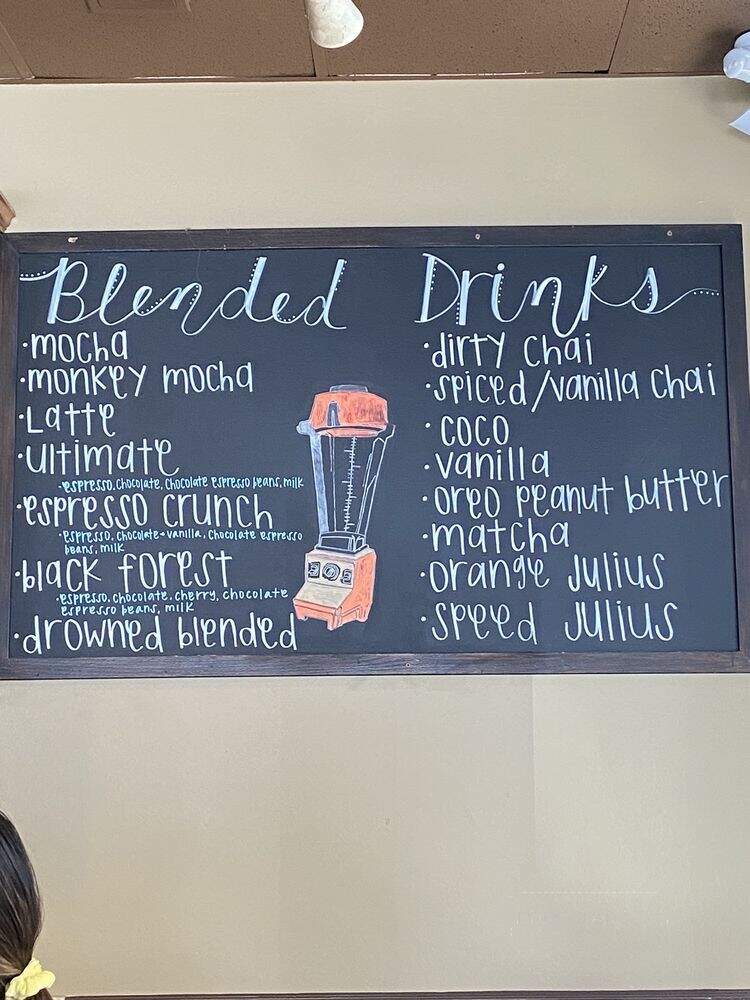 Blended Drinks
·mocha
·monkey mocha
·Latte
·ultimate
·espresso, chocolate, chocolate espresso beans, milk
·espresso crunch
·espresso, chocolate+vanilla, chocolate espresso
beans, milk
·black forest
·espresso, chocolate, cherry, chocolate
espresso beans, milk
·drowned blended
·dirty chai
·spiced/vanilla chai
·coco
·vanilla
·oreo peanut butter
·matcha
·orange Julius
·speed Julius